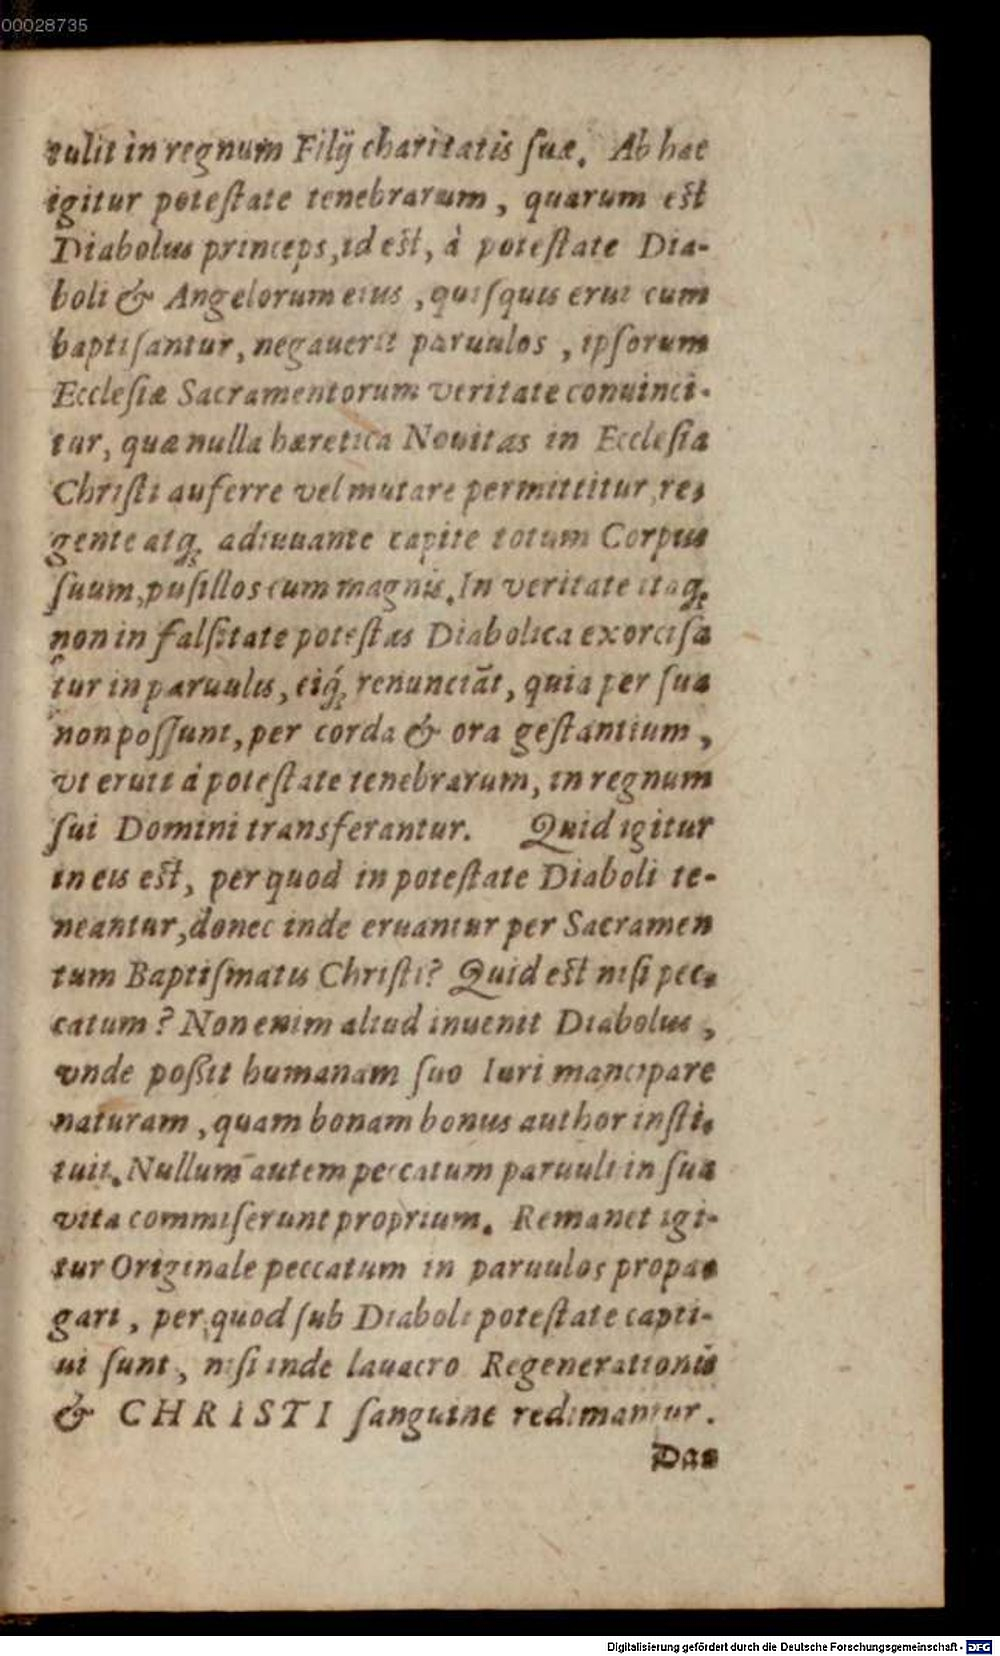 00028735
tulit in regnum Filij charitatis ſuæ. Ab hac
igitur poteſtate tenebrarum, quarum eſt
Diabolus princeps, id eſt, à poteſtate Dia-
boli & Angelorum eius, quiſquis erui cum
baptiſantur, negauerit paruulos, ipſorum
Eccleſiæ Sacramentorum veritate conuinci-
tur, quæ nulla hæretica Nouitas in Eccleſia
Chriſti auferre vel mutare permittitur, re-
gente atq; adiuuante capite totum Corpus
ſuum, puſillos cum magnis. In veritate itaq;
non in falſitate poteſtas Diabolica exorciſa
tur in paruulis, eiq́; renunciāt, quia per ſua
non poſſunt, per corda & ora geſtantium,
vt eruti à poteſtate tenebrarum, in regnum
ſui Domini transferantur. Quid igitur
in eis eſt, per quod in poteſtate Diaboli te-
neantur, donec inde eruantur per Sacramen
tum Baptiſmatis Chriſti? Quid eſt niſi pec-
catum? Non enim aliud inuenit Diabolus,
vnde poßit humanam ſuo Iuri mancipare
naturam, quam bonam bonus author inſti-
tuit. Nullum autem peccatum paruuli in ſua
vita commiſerunt proprium. Remanet igi-
tur Originale peccatum in paruulos propa-
gari, per quod ſub Diaboli poteſtate capti-
ui ſunt, niſi inde lauacro Regenerationis
& CHRISTI ſanguine redimantur.
Das
Digitalisierung gefördert durch die Deutsche Forschungsgemeinschaft - DFG